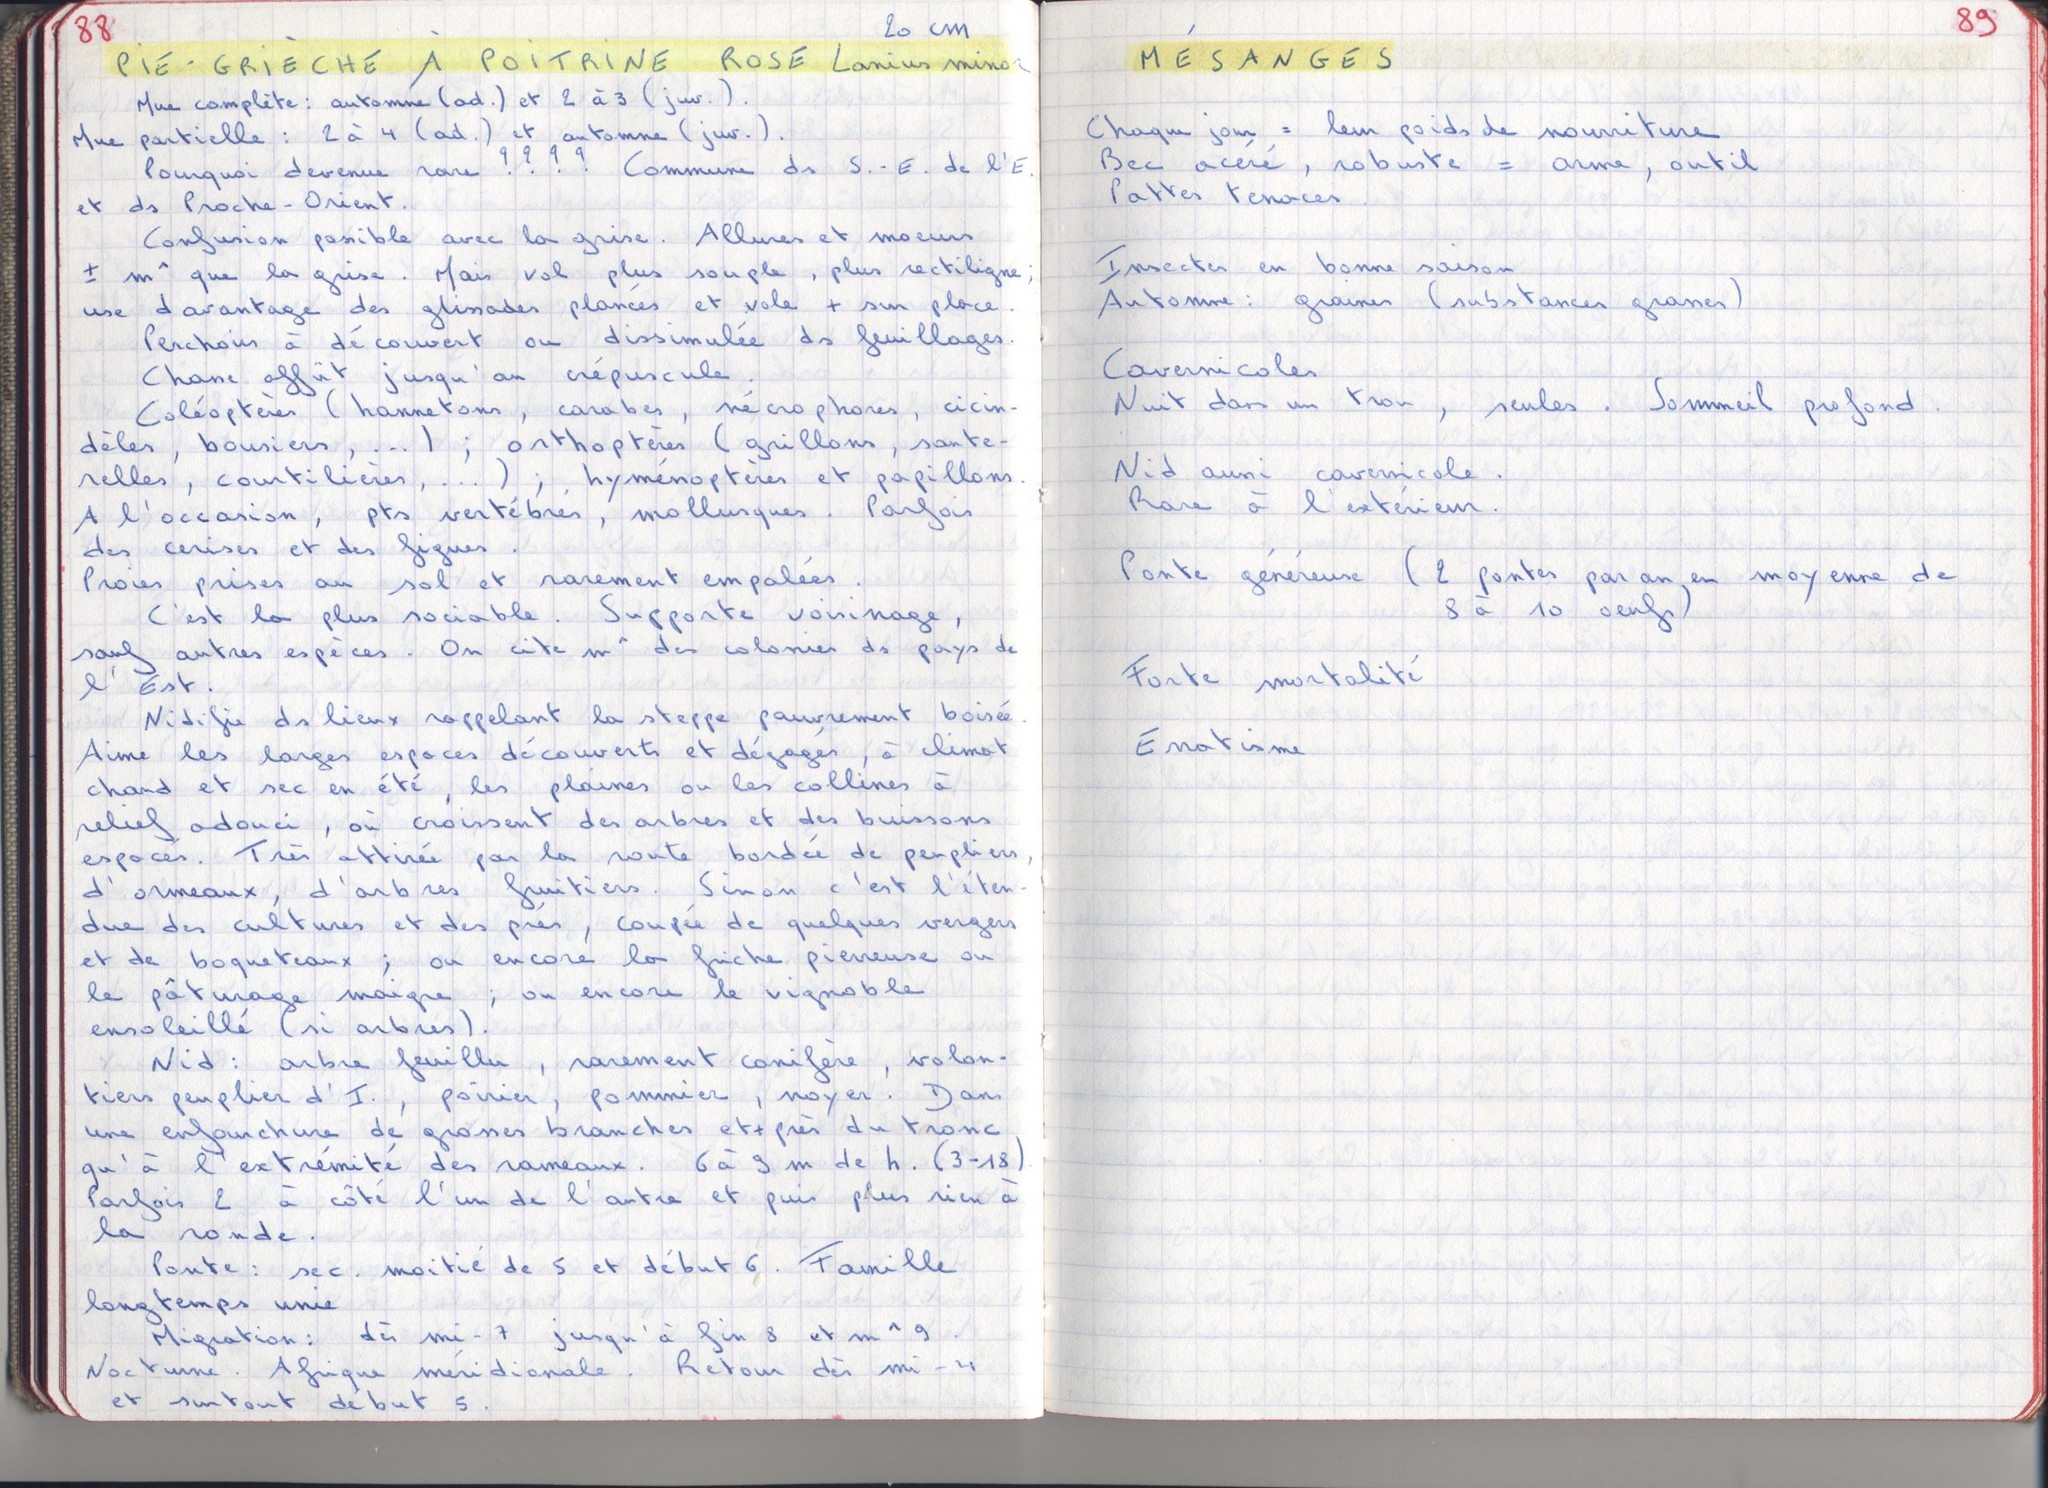 88
20 cm
PIE-GRIÈCHE À POITRINE ROSE Lanius minor
Mue complète : automne (ad.) et 2 à 3 (juv.).
Mue partielle : 2 à 4 (ad.) et automne (juv.).
Pourquoi devenue rare ???? Commune ds S.-E. de l'E.
et ds Proche-Orient.
Confusion possible avec la grise. Allures et moeurs
± m^ que la grise. Mais vol plus souple, plus rectiligne ;
use davantage des glissades planées et vole + sur place.
Perchoirs à découvert ou dissimulée ds feuillages.
Chasse affût jusqu'au crépuscule.
Coléoptères (hannetons, carabes, nécrophores, cicin-
dèles, bousiers, ...) ; orthoptères (grillons, saute-
relles, courtilières, ...) ; hyménoptères et papillons.
A l'occasion, pts vertébrés, mollusques. Parfois
des cerises et des figues.
Proies prises au sol et rarement empalées.
C'est la plus sociable. Supporte voisinage,
sauf autres espèces. On cite m^ des colonies ds pays de
l'Est.
Nidifie ds lieux rappelant la steppe pauvrement boisée.
Aime les larges espaces découverts et dégagés, à climat
chaud et sec en été, les plaines ou les collines à
relief adouci, où croissent des arbres et des buissons
espacés. Très attirée par la route bordée de peupliers,
d'ormeaux, d'arbres fruitiers. Sinon c'est l'éten-
due des cultures et des prés, coupée de quelques vergers
et de boqueteaux ; ou encore la friche pierreuse ou
le pâturage maigre ; ou encore le vignoble
ensoleillé (si arbres).
Nid : arbre feuillu, rarement conifère, volon-
tiers peuplier d'I., poirier, pommier, noyer. Dans
une enfourchure de grosses branches et + près du tronc
qu'à l'extrémité des rameaux. 6 à 9 m de h. (3-18)
Parfois 2 à côté l'un de l'autre et puis plus rien à
la ronde.
Ponte : sec. moitié de 5 et début 6. Famille
longtemps unie
Migration : dès mi-7 jusqu'à fin 8 et m^ 9.
Nocturne. Afrique méridionale. Retour dès mi-4
et surtout début 5.
89
MÉSANGES
Chaque jour = leur poids de nourriture
Bec acéré, robuste = arme, outil
Pattes tenaces.
Insectes en bonne saison
Automne : graines (substances grasses)
Cavernicoles
Nuit dans un trou, seules. Sommeil profond.
Nid aussi cavernicole.
Rare à l'extérieur.
Ponte généreuse (2 pontes par an, en moyenne de
8 à 10 oeufs)
Forte mortalité
Erratisme